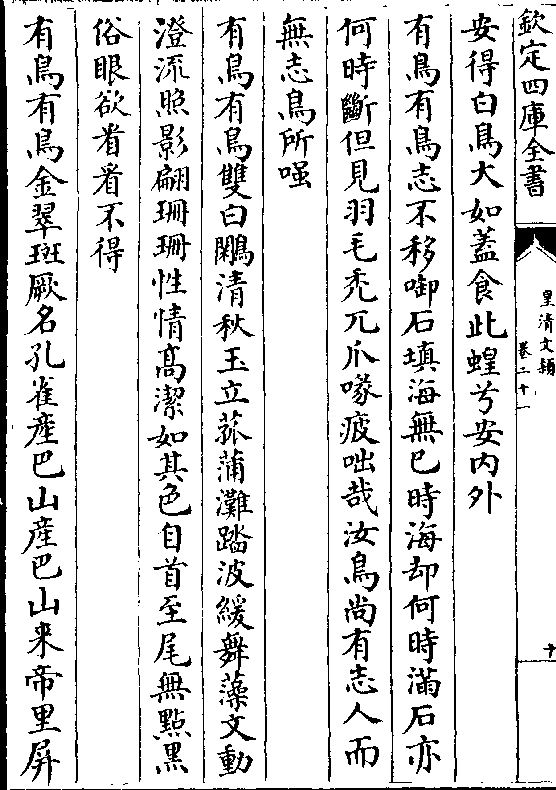 欽定四庫全書
皇清文穎
卷二十一
十
安得白鳥大如蓋食此蝗兮安內外
有鳥有鳥志不移啣石填海無已時海却何時滿石亦
何時斷但見羽毛禿兀爪喙疲咄哉汝鳥尚有志人而
無志鳥所嗤
有鳥有鳥雙白鷴清秋玉立菰蒲灘踏波緩舞藻文動
澄流照影翩珊珊性情高潔如其色自首至尾無點黑
俗眼欲看看不得
有鳥有鳥金翠斑厥名孔雀產巴山產巴山来帝里屏